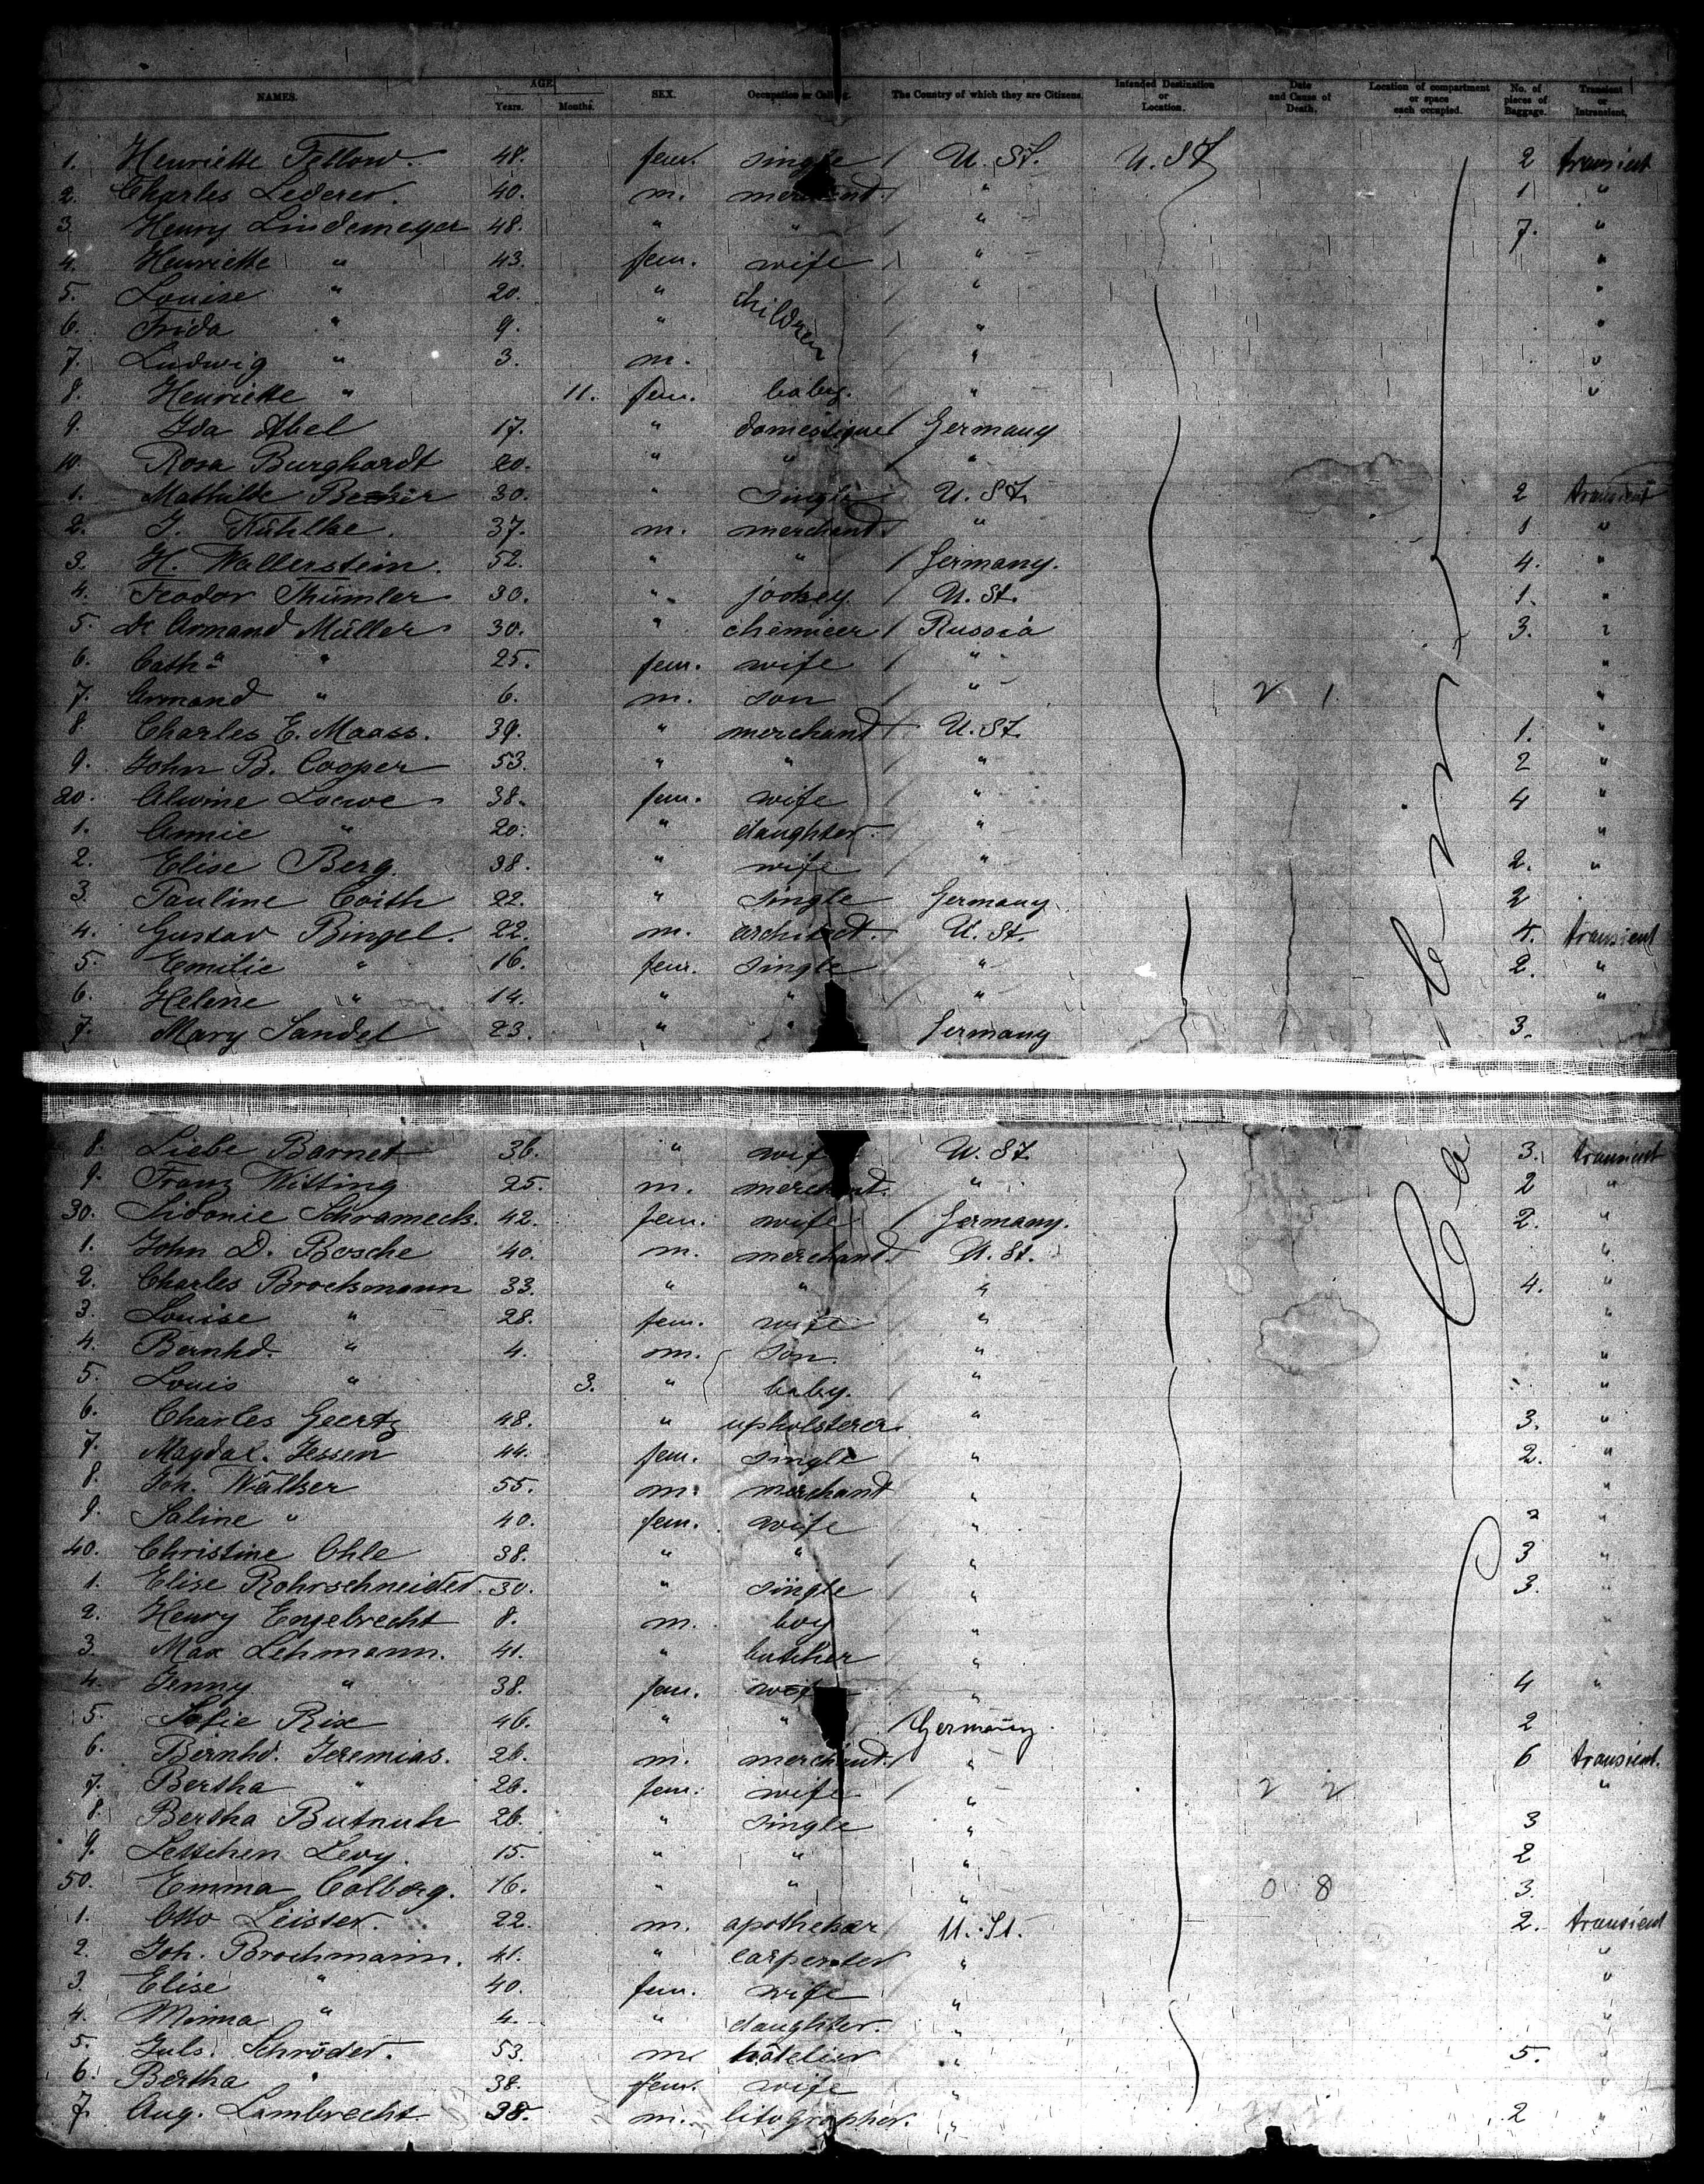 NAMES. AGE Years. Months. SEX. Occupation or Calling. The Country of which they are Citizens. Intended Destination or Location. Date and Cause of Death. Location of compartment or space each occupied. No. of pieces of Baggage. Transient or Intransient.
1. Henriette Fellow. 48. fem. single U. St. U. St 2 transient
2. Charles Lederer. 40. m. merchand. " 1 "
3. Henry Lindemeyer 48. " " " 7. "
4. Henriette " 43. fem. wife " "
5. Louise " 20. " children " "
6. Frida " 9. " " "
7. Ludwig " 3. m. " "
8. Henriette " 11. fem. baby. " "
9. Ida Abel 17. " domestique Germany
10. Rosa Burghardt 20. " " "
1. Mathilde Becker 30. " single U. St. 2 transient
2. J. Kühlke. 37. m. merchand " 1. "
3. H. Wallerstein. 52. " " Germany. 4. "
4. Feodor Thümler 30. " jockey. U. St. 1. "
5. Dr Armand Müller 30. " chemicer Russia 3. "
6. Cath.a " 25. fem. wife " "
7. Armand " 6. m. son " 2 1. "
8. Charles E. Maass. 39. " merchand U. St. 1. "
9. John B. Cooper 53. " " " 2 "
20. Alwine Loewe 38. fem. wife " 4 "
1. Annie " 20. " daughter. " "
2. Elise Berg. 38. " wife " 2. "
3. Pauline Coith 22. " single Germany. 2
4. Gustav Bingel. 22. m. architect. U. St. 4. transient
5. Emilie " 16. fem. single " 2. "
6. Helene " 14. " " " "
7. Mary Sandel 23. " " Germany 3.
Cabin
8. Liebe Barnet 36. " wife U. St. 3. transient
9. Franz Witting 25. m. merchand. " 2 "
30. Sidonie Schrameck. 42. fem. wife Germany. 2. "
1. John D. Bosche 40. m. merchand. U. St. "
2. Charles Brocksmann 33. " " " 4. "
3. Louise " 28. fem. wife " "
4. Bernhd. " 4. m. son. " "
5. Louis " 3. " baby. " "
6. Charles Geertz 48. " upholsterer. " 3. "
7. Magdal. Jessen 44. fem. single " 2. "
8. Joh. Walker 55. m. merchand " "
9. Saline " 40. fem. wife " 2 "
40. Christine Ohle 38. " " " 3 "
1. Elise Rohrschneider. 30. " single " 3. "
2. Henry Engelbrecht 8. m. boy "
3. Max Lehmann. 41. " butcher "
4. Jenny " 38. fem. wife " 4 "
5. Sofie Rix 46. " " Germany. 2
6. Bernhd. Jeremias. 26. m. merchand. " 6 transient.
7. Bertha " 26. fem. wife " 2 2 "
8. Bertha Butnuh 26. " single " 3
9. Lettchen Levy. 15. " " " 2
50. Emma Colberg. 16. " " " 0 8 3.
1. Otto Leister. 22. m. apothekar U. St. 2. transient
2. Joh. Brochmann. 41. " carpenter " "
3. Elise " 40. fem. wife " "
4. Minna " 4. " daughter. " "
5. Juls. Schröder. 53. m. hôtelier " 5. "
6. Bertha " 38. fem. wife "
7. Aug. Lambrecht 38. m. litographer. " 2 "